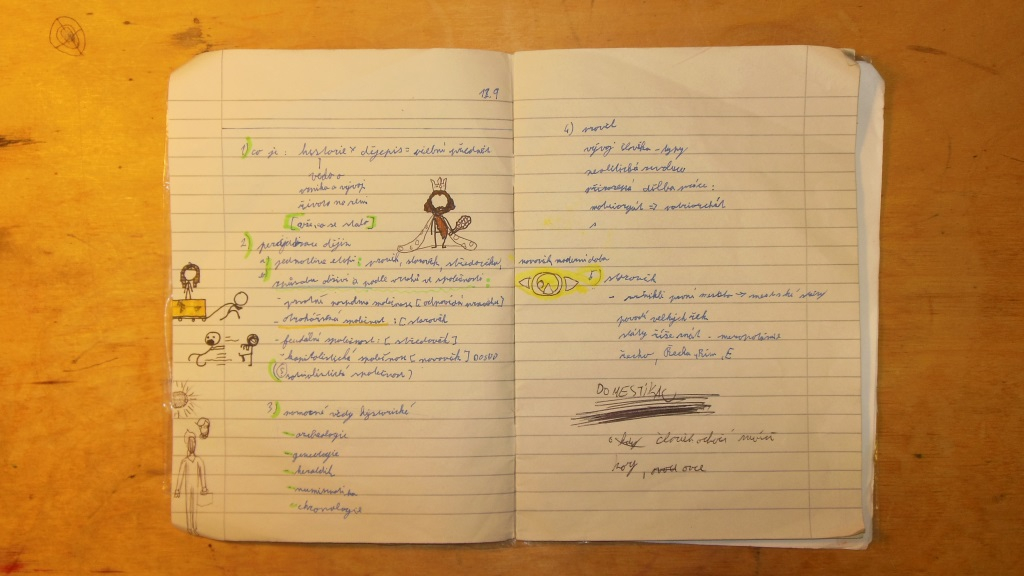 11.9
1) co je: historie × dějepis = učební předmět
věda o
vzniku a vývoji
života na zemi
[vše, co se stalo]
2) periodizace dějin
a) jednotlivé etapy: pravěk, starověk, středověk, novověk, moderní doba
způsobu obživy a podle vztahů ve společnosti:
- prvotně pospolná společnost [odpovídá pravěku]
- otrokářská společnost: [starověk
- feudální společnost: [středověk]
- kapitalistická společnost [novověk] DOSUD
(socialistická společnost)
3) pomocné vědy historické
- archeologie
- geneologie
- heraldik
- numismatika
- chronologie
4) pravěk
vývoj člověka - typy
neolitická revoluce
přirozená dělba práce:
matriarchát => patriarchát
5) starověk
- vznikli první města -> městské státy
povodí velkých řek
státy říše - mezopotámie
Řecko, Řím, E
DOMESTIKAC
člověk ochočí zvíře
kozy, ovce